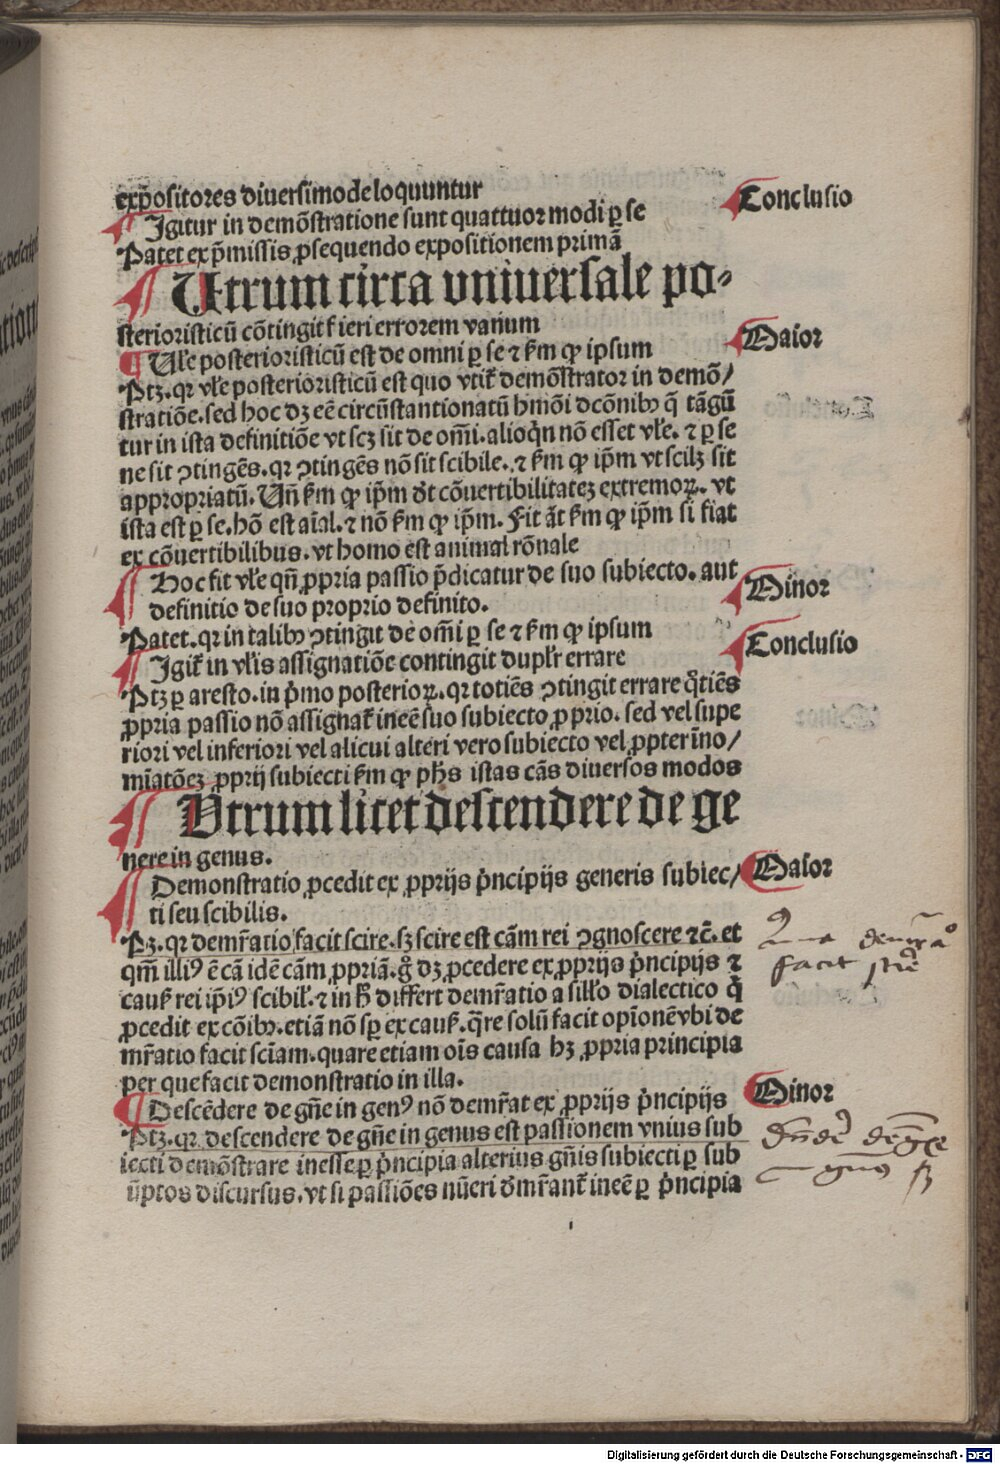 exp̄ositores diuersimode loquuntur
Conclusio
Igitur in demōstratione sunt quattuor modi ꝑ se
Patet ex p̄missis ꝓsequendo expositionem primā
Utrum circa vniuersale po⸗
sterioristicū cōtingit fieri errorem varium
Maior
Vl̄e posterioristicū est de omni ꝑ se ⁊ ẜm ꝙ ipsum
Ptꝫ. qꝛ vl̄e posterioristicū est quo vtit̄ demōstrator in demō/
stratiōe. sed hoc dꝫ eē circūstantionatū hmōi ↄditōnibꝰ q̄ tāgū
tur in ista definitiōe vt scꝫ sit de om̄i. alioq̄n nō esset vl̄e. ⁊ ꝑ se
ne sit ↄtingēs. qꝛ ↄtingēs nō sit scibile. ⁊ ẜm ꝙ ip̄m vt scilꝫ sit
appropriatū. Vn̄ ẜm ꝙ ip̄m dt̄ cōuertibilitateꝫ extremoꝝ. vt
ista est ꝑ se. hō est aīal. ⁊ nō ẜm ꝙ ip̄m. Fit āt ẜm ꝙ ip̄m si fiat
ex cōuertibilibus. vt homo est animal rōnale
Hoc fit vl̄e qn̄ ꝓpria passio p̄dicatur de suo subiecto. aut
Minor
definitio de suo proprio definito.
Patet. qꝛ in talibꝰ ↄtingit de om̄i ꝑ se ⁊ ẜm ꝙ ipsum
Conclusio
Igit̄ in vl̄is assignatiōe contingit duplr̄ errare
Ptꝫ ꝑ aresto. in p̄mo posterioꝝ. qꝛ totiēs ↄtingit errare q̄tiēs
ꝓpria passio nō assignat̄ ineē suo subiecto ꝓprio. sed vel supe
riori vel inferiori vel alicui alteri vero subiecto vel ꝓpter īno/
mīatōeꝫ ꝓprij subiecti ẜm ꝙ ph̄s istas cās diuersos modos
Vtrum licet descendere de ge
nere in genus.
Demonstratio ꝓcedit ex ꝓprijs p̄ncipijs generis subiec/
Maior
ti seu scibilis.
Pꝫ. qꝛ demr̄atio facit scire. sꝫ scire est cām rei ↄgnoscere ⁊c̄. et
qm̄ illiꝰ ē cā idē cām ꝓpriā. g̊ dꝫ ꝓcedere ex ꝓprijs p̄ncipijs ⁊
cauẜ rei ip̄iꝰ scibil̄. ⁊ in h̄ differt demr̄atio a sill̄o dialectico q̄
ꝓcedit ex cōibꝰ. etiā nō sꝑ ex cauẜ. q̄re solū facit opīonē vbi de
mr̄atio facit sciām. quare etiam oīs causa hꝫ ꝓpria principia
per que facit demonstratio in illa.
facit scir̄e
Descēdere de gn̄e in genꝰ nō demr̄at ex ꝓprijs p̄ncipijs
Minor
Ptꝫ. qꝛ descendere de gn̄e in genus est passionem vnius sub
iecti demōstrare inesse ꝑ p̄ncipia alterius gn̄is subiecti ꝑ sub
ūptos discursus. vt si passiōes nūeri dm̄rant̄ ineē ꝑ p̄ncipia
Digitalisierung gefördert durch die Deutsche Forschungsgemeinschaft - DFG